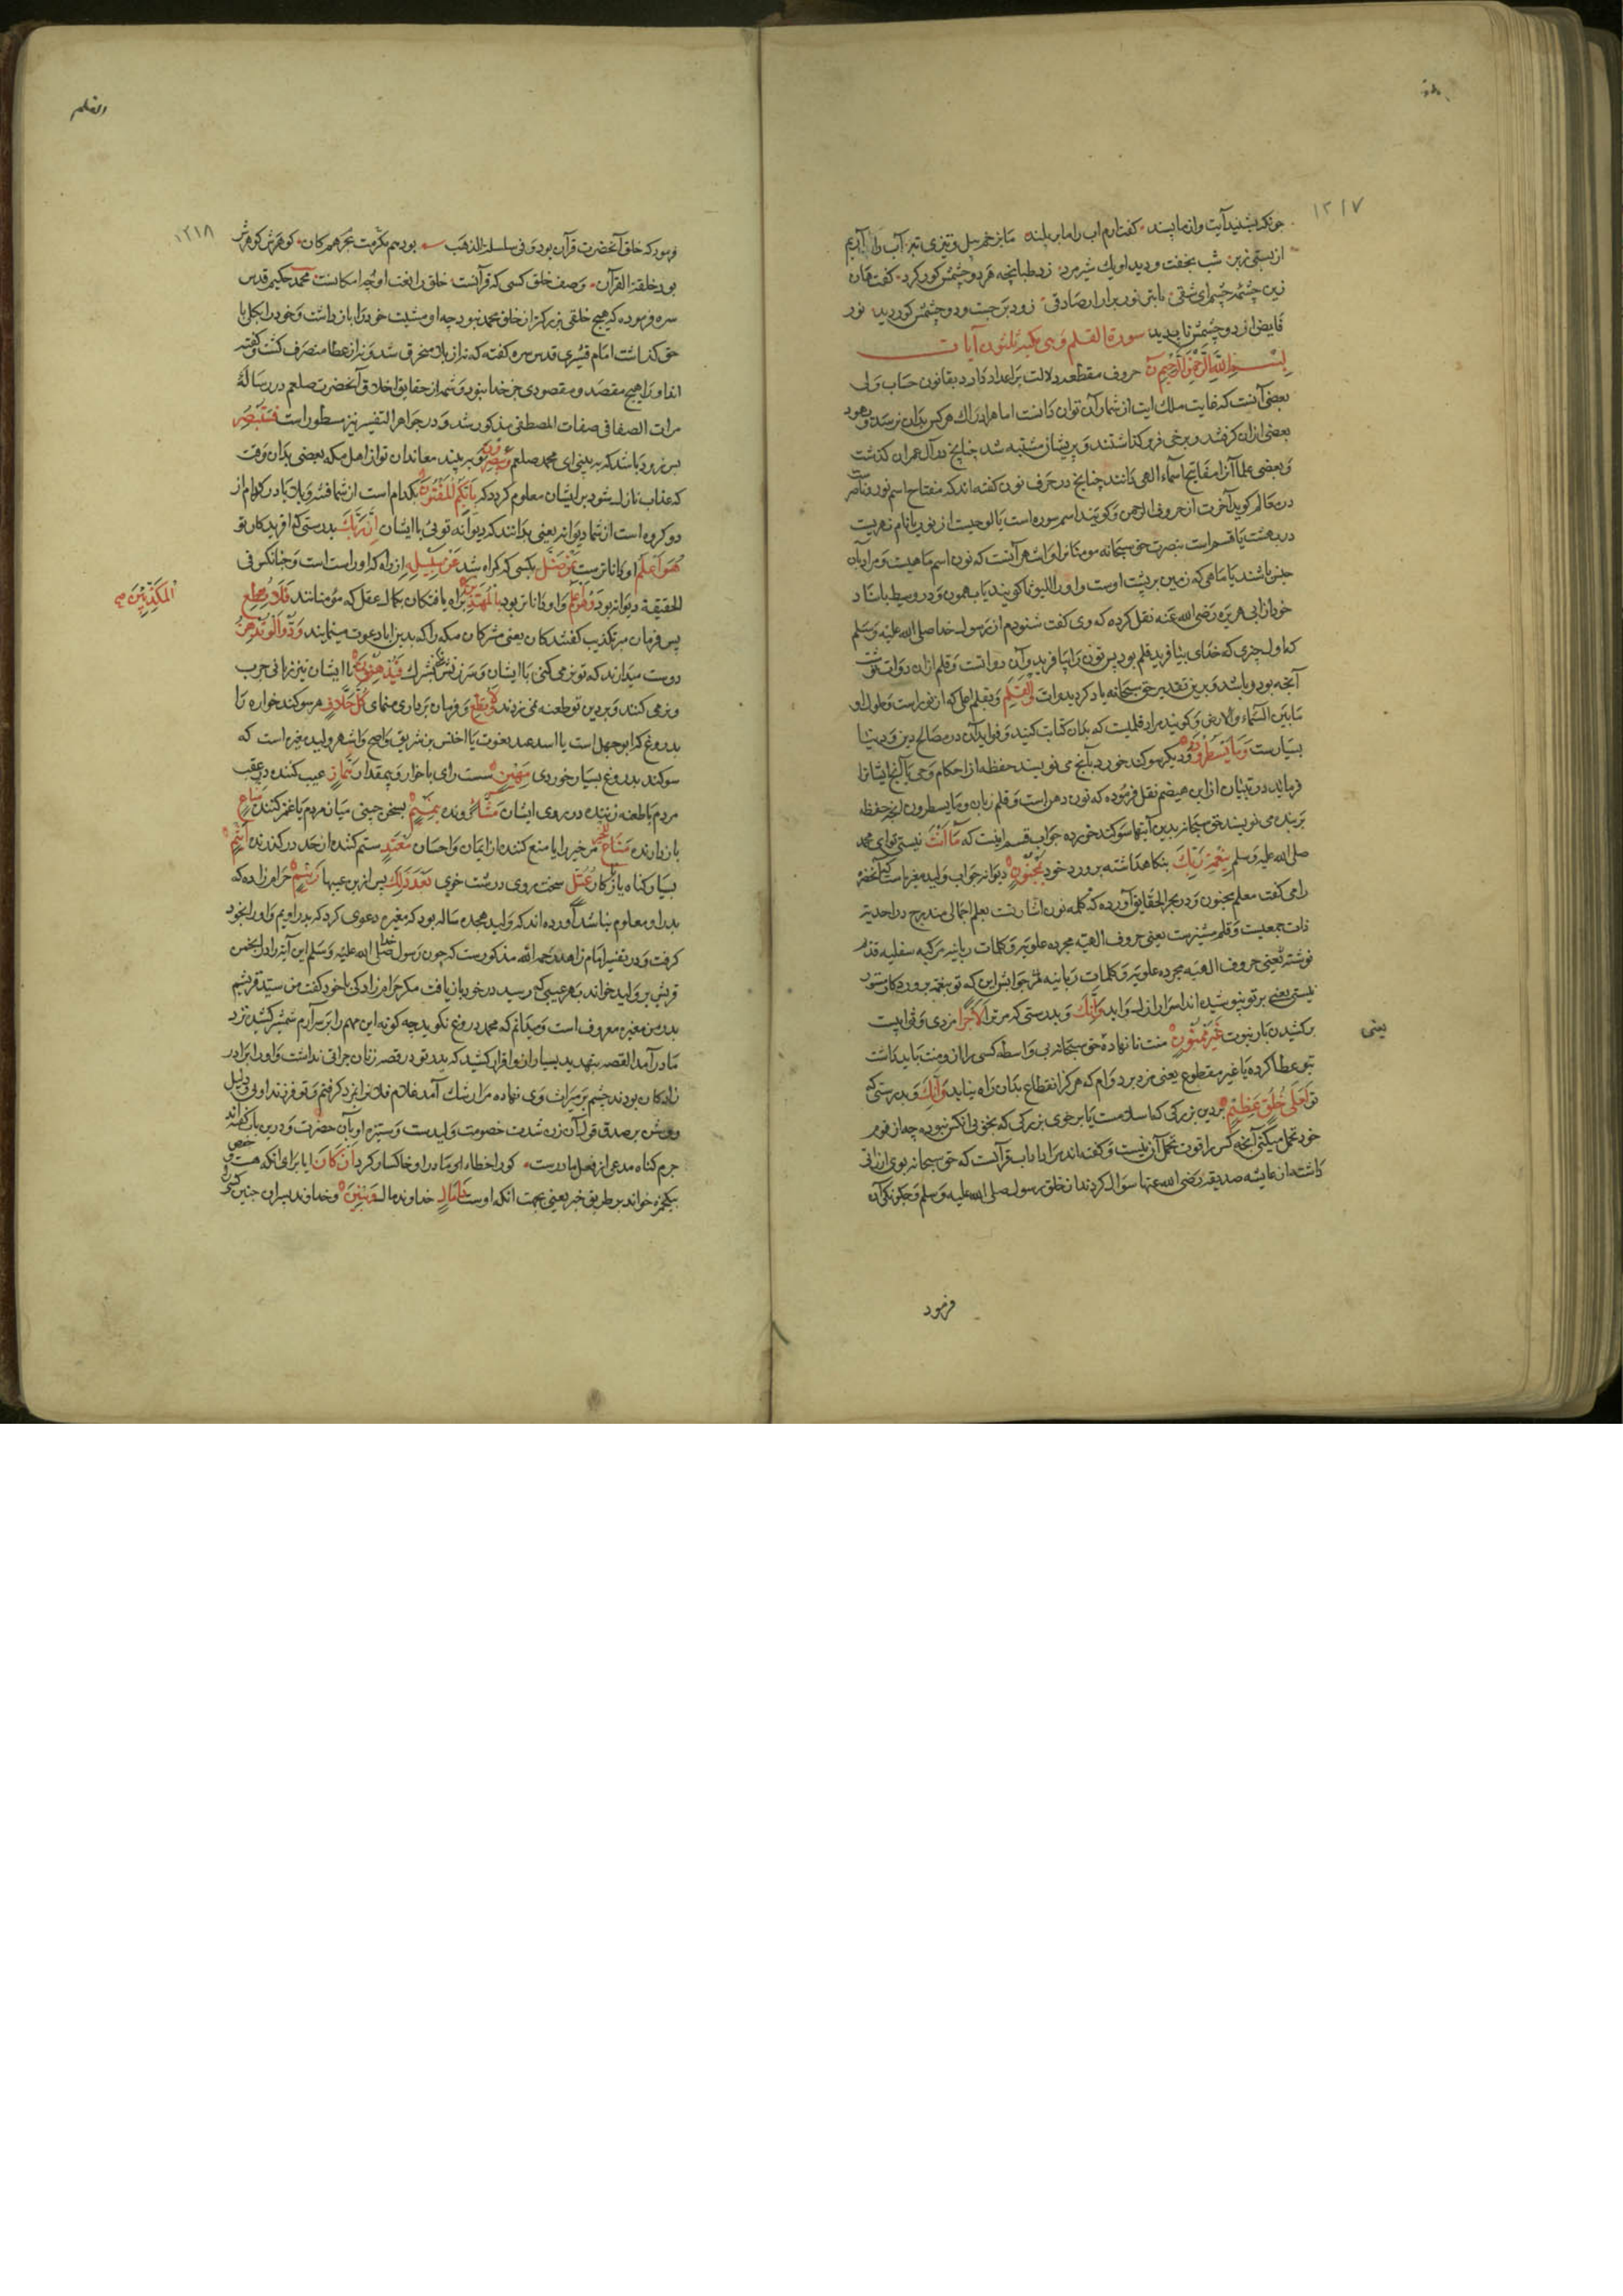 ۱۲۱۷
چونکه بشنید آیت او از ناپسند گفت آرم آب را ما بر بلند ما بزخم بیل و تیزی تبر آب را آریم
از پستی زبر شب بخفت و دید او یک شیرمرد زد طبانچه هر دو چشمش کور کرد گفت هان
زین چشمه چشم ای شقی با تبر نور برآر ار صادقی روز برجست و دو چشمش کور دید نور
فایض از دو چشمش ناپدید سورة القلم وهی مکیة آیات
بسم الله الرحمن الرحیم ن حروف مقطعه دلالت بر اعداد دارد بقانون حساب ولی
بعضی آنست که غایت ملک این از شمار آن توان دانست اما هر ادراک هر کس بدان نرسد
بعضی ازان گرفتند و برخی فرو گذاشتند و بر ایشان مشتبه شد چنانچ در آل عمران گذشت
و بعضی علما آنرا مفاتیح اسماء الهی دانند چنانچ در حرف نون گفته اند که مفتاح اسم نور و ناصر
در عالم گوید آخرت از حروف الرحمن و گویند اسم سوره است یا لوحیست از نور یا نام نهریست
در بهشت یا قسم است بنصرت حق سبحانه مومنانرا و اشهر آنست که نون اسم ماهیست و مراد بآن
جنس باشد یا ماهی که زمین بر پشت اوست و او را لیوثا گویند یا بهموت و در وسیط باسناد
خود از ابی هریره رضی الله عنه نقل کرده که وی گفت شنودم از رسول خدا صلی الله علیه وسلم
که اول چیزی که خدای بیافرید قلم بود پس نون را بیافرید و آن دواتست و قلم ازان دوات نوشت
آنچه بود و باشد و برین تقدیر حق سبحانه یاد کرد بدوات والقلم و بقلم اعلی که از نورست و طول او
ما بین السماء والارض و گویند مراد قلمیست که بدان کتابت کنند و فواید آن در مصالح دین و دنیا
بسیارست وما یسطرون و دیگر سوگند خورد بآنچ می نویسند حفظه از احکام وحی یا آنچ ایشانرا
فرمایند در تبیان از ابن هیصم نقل فرموده که نون دهن است و قلم زبان و ما یسطرون آنچ حفظه
بر بنده می نویسند حق سبحانه بدین آیتها سوگند خورده جواب قسم اینست که ما انت نیستی تو ای محمد
صلی الله علیه وسلم بنعمة ربک بنگاهداشته پرورد خود بمجنون دیوانه جواب ولید مغیره است که آنحضرة
را می گفت معلم مجنون و در بحر الحقایق آورده که کلمه نون اشارتست بعلم اجمالی مندرج در احدیة
ذات جمعیت و قلم
نوشته یعنی حروف الهیه مجرده علویه و کلمات ربانیه جوابش این که تو بنعمة پروردگار مستور
نیستی یعنی بر تو پوشیده اند اسرار ازل و ابد وان لک و بدرستی که مر ترا لاجرا مزدی و ثوابیست
بر کشیدن بار نبوت غیر ممنون منت نا نهاده حق سبحانه بی واسطه کسی را از و منت باید داشت
بتو عطا کرده یا غیر مقطوع یعنی مزد بر دوام که هرگز انقطاع بدان راه نیابد وانک و بدرستی که
تو لعلی خلق عظیم بر دین بزرگی که اسلامست یا بر خوی بزرگی که بخوبی آن کس نبوده چه از قوم
خود تحمل میکنی آنچه کس را قوت تحمل آن نیست و گفته اند مراد آداب قرآنست که حق سبحانه بوی ارزانی
داشته از عایشه صدیقه رضی الله عنها سوال کردند از خلق رسول صلی الله علیه وسلم و چگونگی آن
فرمود
والقلم
۱۲۱۸
فرمود که خلق آنحضرت قرآن بود و فی سلسلة الذهب بود هم مکرمت هم کان گوهرش
بود خلقه القرآن وصف خلق کسی که قرآنست خلق را نعت او چه امکانست محمد حکیم قدس
سره فرموده که هیچ خلقی بزرگتر از خلق محمد نبود چه او مشیت خود را باز داشت و خود را بکلی با
حق گذاشت امام قشیری قدس سره گفته که نه از بلا منحرف شد و نه از عطا منصرف گشت و گفته
اند او را هیچ مقصد و مقصودی جز خدا نبود و شمه از حقایق اخلاق آنحضرت صلعم در رساله
مرآت الصفا فی صفات المصطفی مذکور شد و در جواهر التفسیر نیز مسطور است فستبصر
پس زود باشد که ببینی ای محمد صلعم ویبصرون و ببینند معاندان تو از اهل مکه یعنی بدان وقت
که عذاب نازل شود بر ایشان معلوم گردد که بایکم المفتون بکدام است از شما فتنه و بلا یا در کدام از
دو گروه است از شما دیوانه یعنی بدانند که دیوانه توئی یا ایشان ان ربک بدرستی که آفریدگار تو
هو اعلم او داناترست بمن ضل بکسی که گمراه شد عن سبیله از راه او که راه راست است
الحقیقة دیوانه بود وهو اعلم و او داناتر بود بالمهتدین براه یافتگان بکمال عقل که مومنانند فلا تطع
المکذبین صح
پس فرمان مبر تکذیب کنندگان یعنی مشرکان مکه را که بدین آبا دعوت مینمایند ودوا لو تدهن
دوست میدارند که تو نرمی کنی با ایشان و سرزنش نکنی بشرک فیدهنون تا ایشان نیز نرمی
و نرمی کنند و بر دین تو طعنه نزدند ولا تطع و فرمان برداری منمای کل حلاف هر سوگند خواره را
بدروغ که ابوجهل است یا اسد عبد یغوث یا اخنس بن شریق و اصح و اشهر ولید مغیره است که
سوگند بدروغ بسیار خوردی مهین سست رای یا خوار و بیمقدار هماز عیب کننده در عقب
مردم یا طعنه زننده در روی ایشان مشاء رونده بنمیم بسخن چینی میان مردم یا غمز کننده مناع
باز دارنده مناع للخیر مر خیر را یا منع کننده از ایمان و احسان معتد ستم کننده از حد درگذرنده اثیم
بسیار گناه یا بزه کار عتل سخت روی درشت خوی بعد ذلک پس ازین عیبها زنیم حرامزاده که
پدر او معلوم نباشد آورده اند که ولید هجده ساله بود که مغیره دعوی کرد که پدر اویم و او را بخود
گرفت و در تفسیر امام زاهد رحمه الله مذکورست که چون رسول خدا صلی الله علیه وسلم این آیه را در انجمن
قریش بر ولید خواند بهر عیبی که رسید در خود باز یافت مگر حرامزادگی با خود گفت من سید قریشم
پدر من مغیره معروف است و میدانم که محمد دروغ نگوید چگونه این مهم را بر سر آرم شمشیر کشید نزد
مادر آمد القصه بتهدید بسیار از و اقرار کشید که پدر تو در قصه زنان جرأتی نداشت و او را برادر
زادگان بودند چشم بر میراث وی نهاده مرا رشک آمد غلام فلانرا بمزد گرفتم و تو فرزند اوئی دلیل
روشن بر صدق قول آن زن شدت خصومت ولیدست و ستیزه او با آن حضرت و درین باب گفته اند
جرم گناه مدعی از فعل مادرست کو را خطاء او خاکسار کرد ان کان ایا برای آنکه هست
بیک همزه خواند بر طریق خبر یعنی بجهت آنکه اوست ذا مال خداوند مال وبنین و خداوند پسران چنین